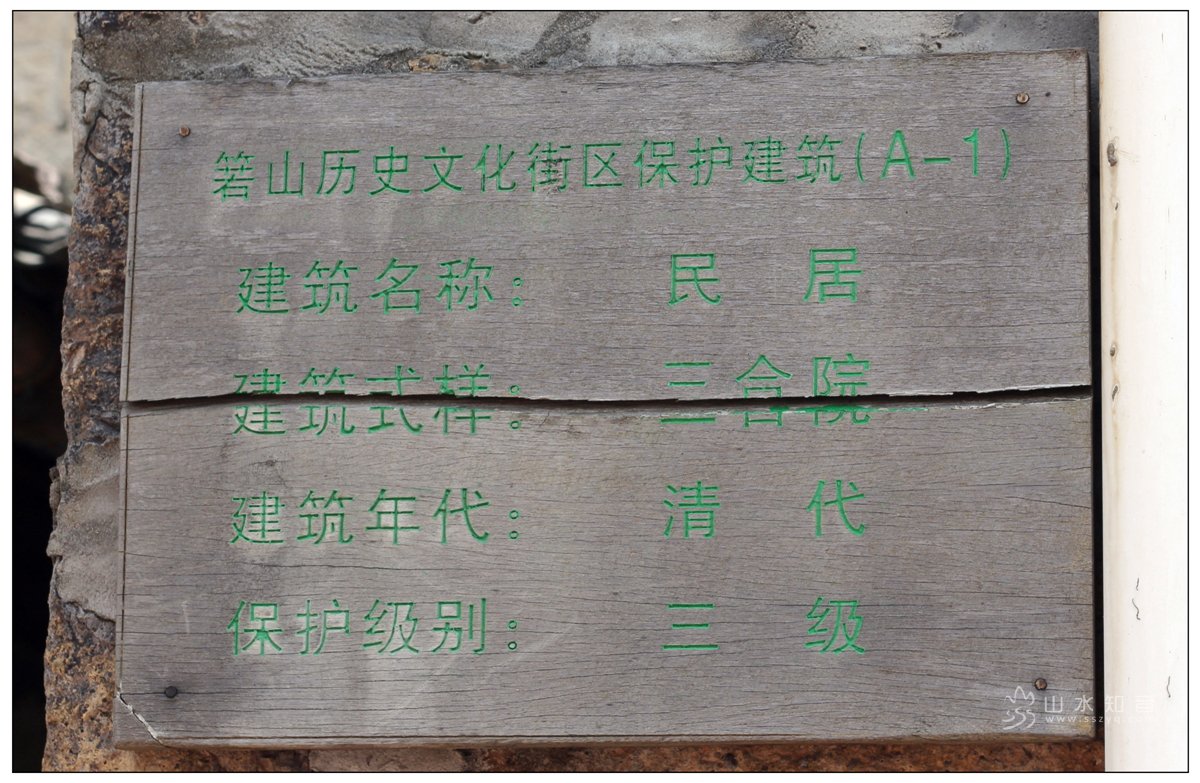 箬山历史文化街区保护建筑(A-1)
建筑名称: 民 居
建筑式样: 三合院
建筑年代: 清 代
保护级别: 三 级
山水知音
www.sszyq.com